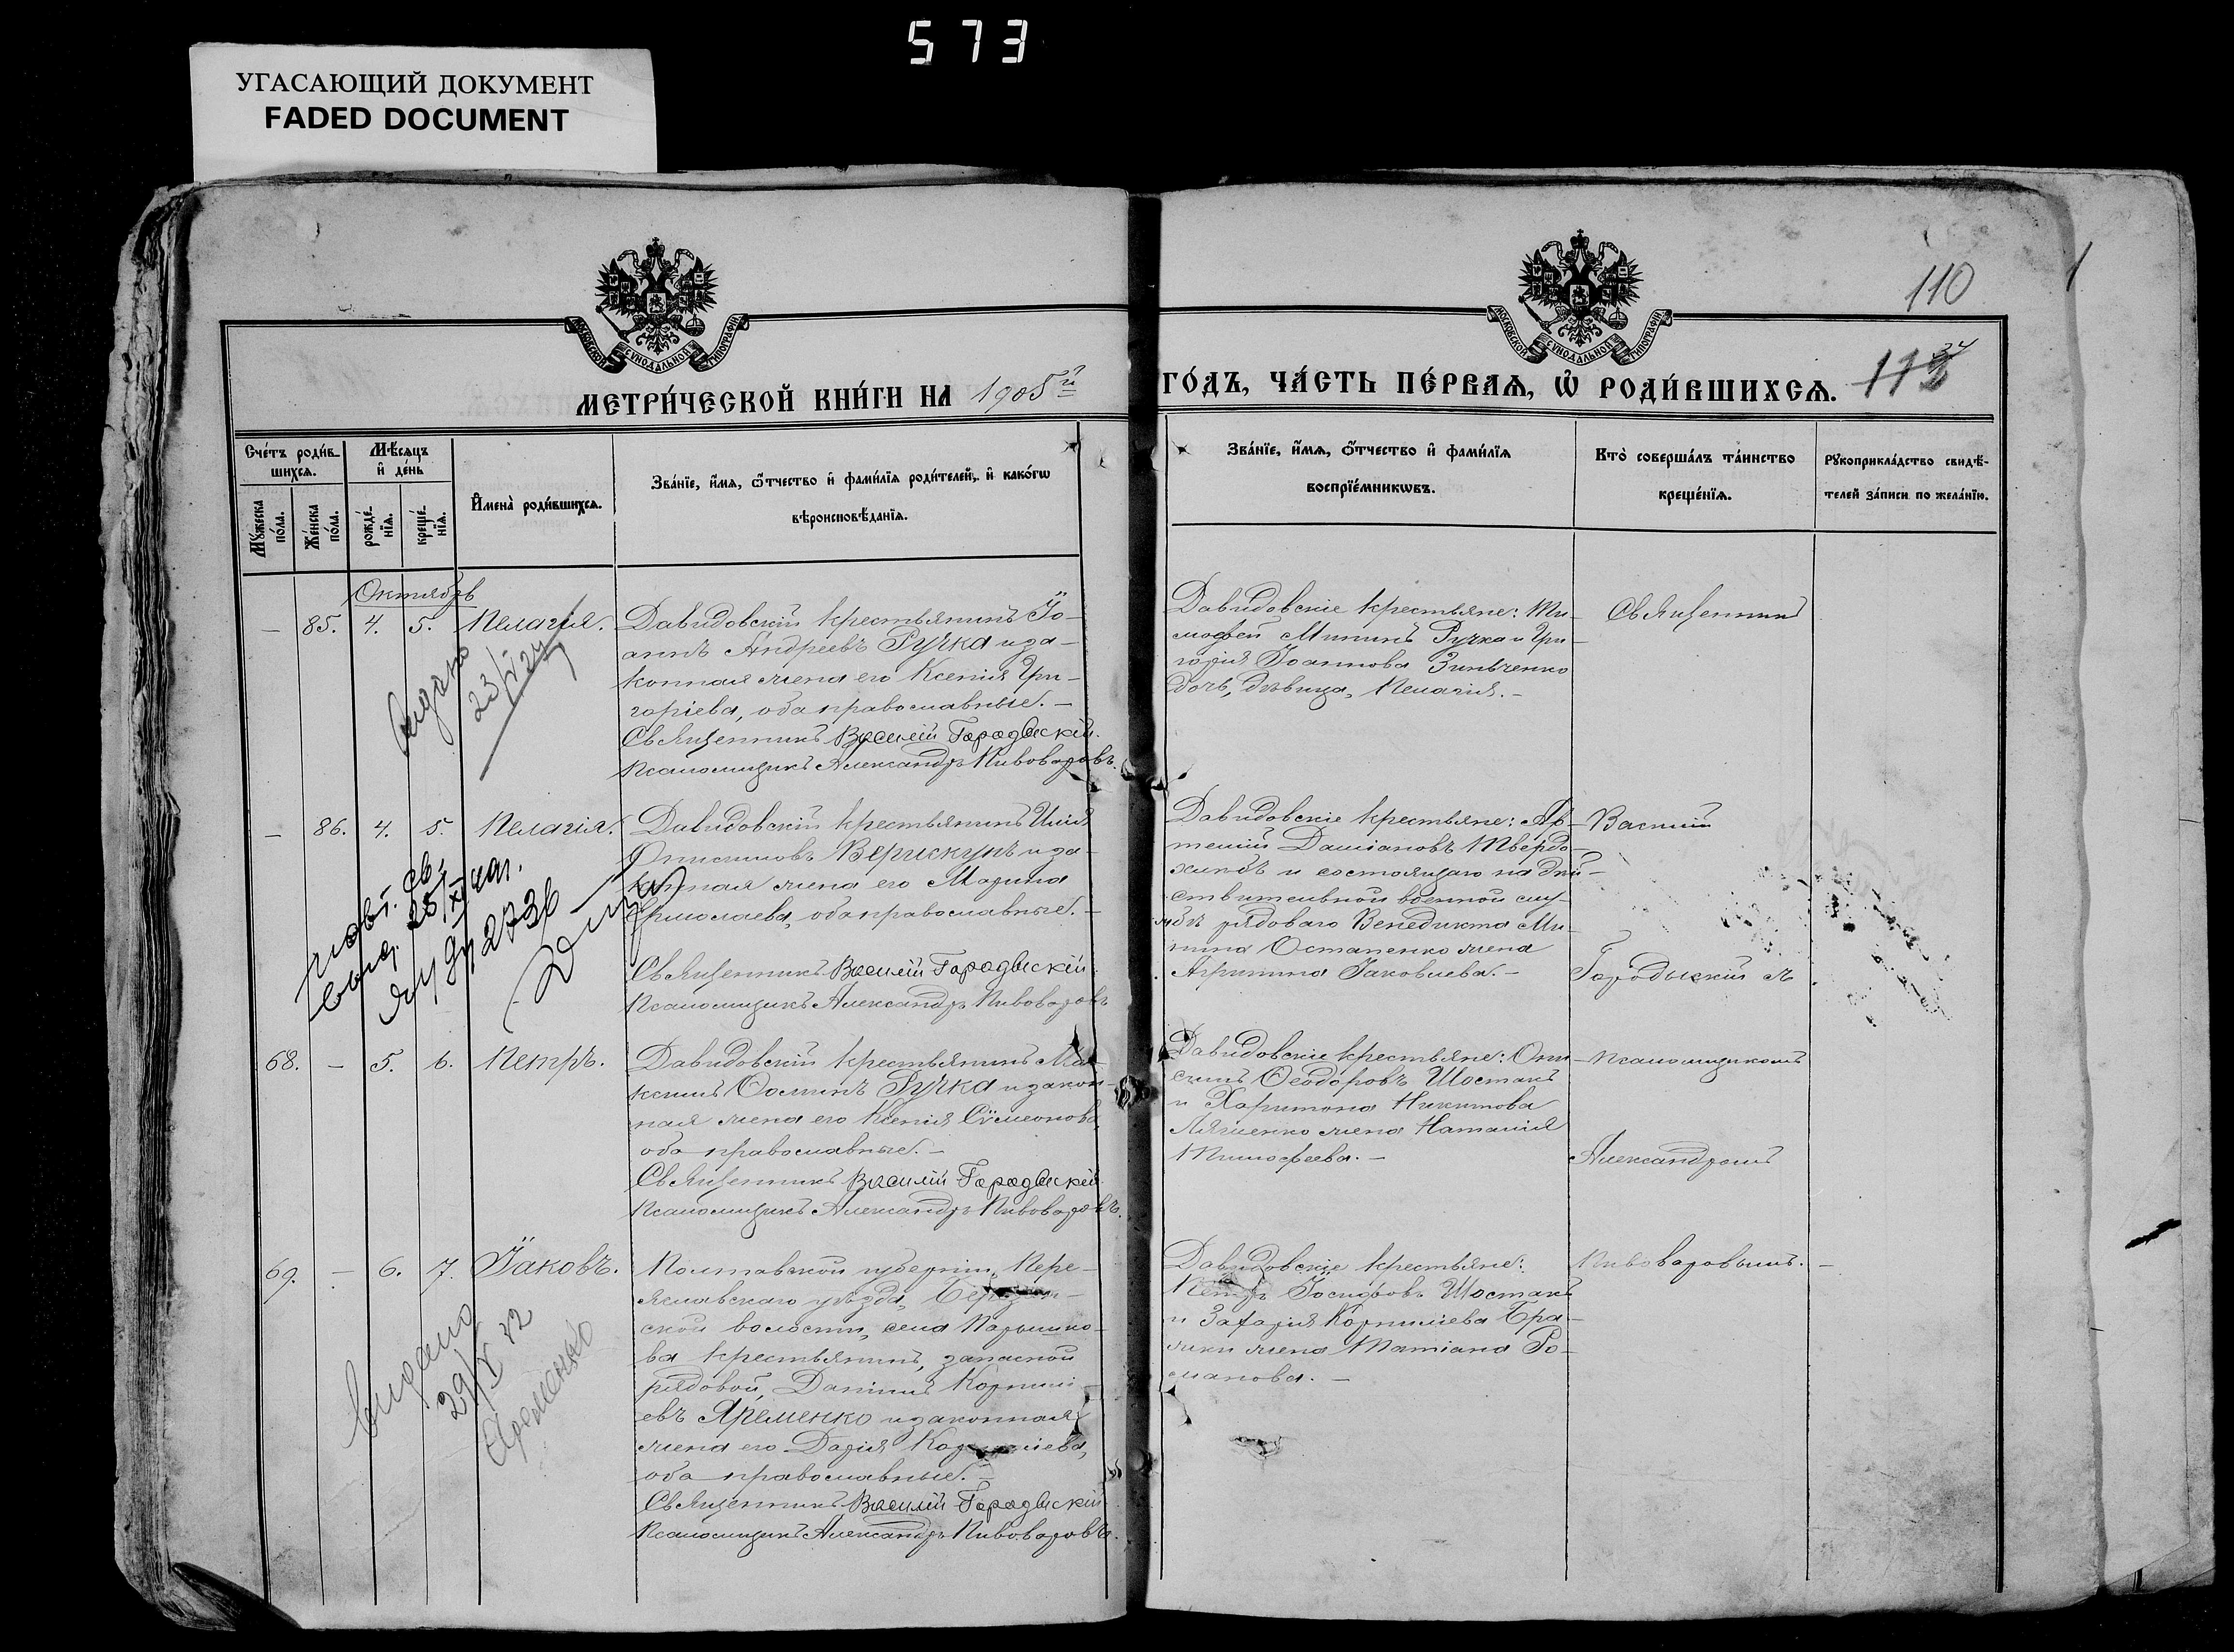 573
УГАСАЮЩИЙ ДОКУМЕНТ
FADED DOCUMENT
110
МОСКОВСКОЙ СѴНОДАЛЬНОЙ ТИПОГРАФІИ
МОСКОВСКОЙ СѴНОДАЛЬНОЙ ТИПОГРАФІИ
МЕТРИ́ЧЕСКОЙ КНИ́ГИ НА 1905й ГО́ДЪ, ЧА́СТЬ ПЕ́РВАѦ, Ѡ РОДИ́ВШИХСѦ.
Сче́тъ роди́в-
шихсѧ.
Мѣ́сѧцъ
и҆ де́нь
Мꙋ́жеска
по́ла.
Же́нска
по́ла.
рожде́-
нїѧ.
креще́-
нїѧ.
И҆мена̀ роди́вшихсѧ.
Зва́нїе, и҆́мѧ, ѻ҆́тчество и҆ фами́лїѧ роди́телей, и҆ како́гѡ
вѣроисповѣ́данїѧ.
Зва́нїе, и҆́мѧ, ѻ҆́тчество и҆ фами́лїѧ
воспрїе́мникѡвъ.
Кто̀ соверша́лъ та́инство
креще́нїѧ.
Рꙋкоприкла́дство свидѣ́-
телей за́писи по жела́нїю.
Октябрь
— 85. 4. 5. Пелагія.
Давидовскій крестьянинъ Іо-
аннъ Андреевъ Ручка и за-
конная жена его Ксенія Гри-
горіева, оба православные. —
Священникъ Василій Городыскій.
Псаломщикъ Александръ Пивоваровъ.
Давидовскіе крестьяне: Ти-
мофей Мининъ Ручка и Гри-
горія Іоаннова Зинченко
дочь, дѣвица, Пелагія. —
Священник
Видано
23/
— 86. 4. 5. Пелагія.
Давидовскій крестьянинъ Илія
Онисимовъ Верискунъ и за-
конная жена его Марина
Ермолаева, оба православные. —
Священникъ Василій Городыскій
Псаломщикъ Александръ Пивоваровъ
Давидовскіе крестьяне: Ар-
темій Даміановъ Твердо-
хлѣбъ и состоящаго на дѣй-
ствительной военной слу-
жбѣ рядоваго Венедикта Ми-
нина Остапенко жена
Агрипина Іаковлева. —
Василій
Городыскій съ
68. — 5. 6. Петръ.
Давидовскій крестьянинъ Ма-
ксимъ Ѳоминъ Ручка и закон-
ная жена его Ксенія Сѵмеонова,
оба православные. —
Священникъ Василій Городыскій
Псаломщикъ Александръ Пивоваровъ.
Давидовскіе крестьяне: Они-
симъ Ѳеодоровъ Шостакъ
и Харитона Никитова
жена Наталія
Тимофеева. —
Псаломщикомъ
Александромъ
69. — 6. 7. Іаковъ.
Полтавской губерніи, Пере-
яславскаго уѣзда,
ской волости, села Парышко-
ва крестьянинъ, запасной
рядовой, Даніилъ Корнилі-
евъ Яременко и законная
жена его Дарія
оба православные. —
Священникъ Василій Городыскій
Псаломщикъ Александръ Пивоваровъ.
Давидовскіе крестьяне:
Петръ Іосифовъ Шостакъ
и Захарія Корнилиева Бра-
жки жена Татіана Ро-
манова. —
Пивоваровымъ. —
Видано
29/V 42
Яременко